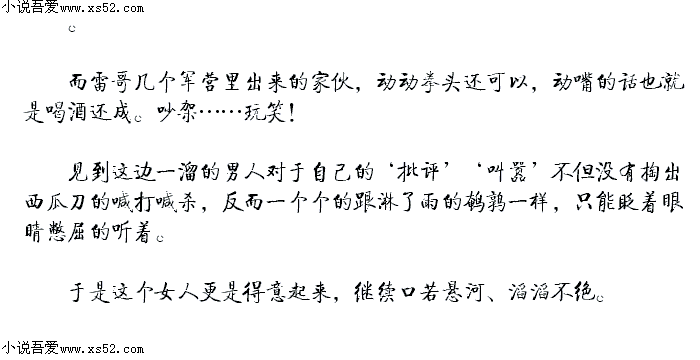 小说吾爱www.xs52.com
。
而雷哥几个军营里出来的家伙，动动拳头还可以，动嘴的话也就
是喝酒还成。吵架……玩笑！
见到这边一溜的男人对于自己的‘批评’‘叫嚣’不但没有掏出
西瓜刀的喊打喊杀，反而一个个的跟淋了雨的鹌鹑一样，只能眨着眼
睛憋屈的听着。
于是这个女人更是得意起来，继续口若悬河、滔滔不绝。
小说吾爱www.xs52.com